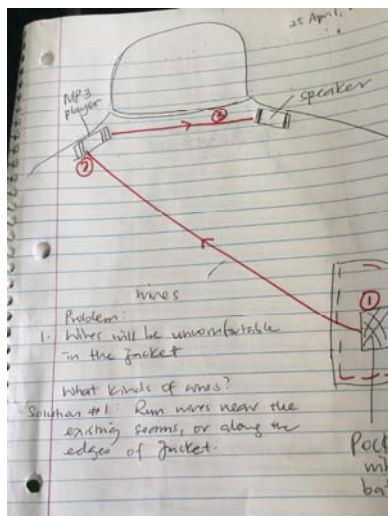 25 April,
MP3
player
speaker
2
1
1
wires
Problem:
1. Wires will be uncomfortable
in the jacket
What kinds of wires?
Solution #1: Run wires near the
existing seams, or along the
edges of jacket.
Pock
wi
ba